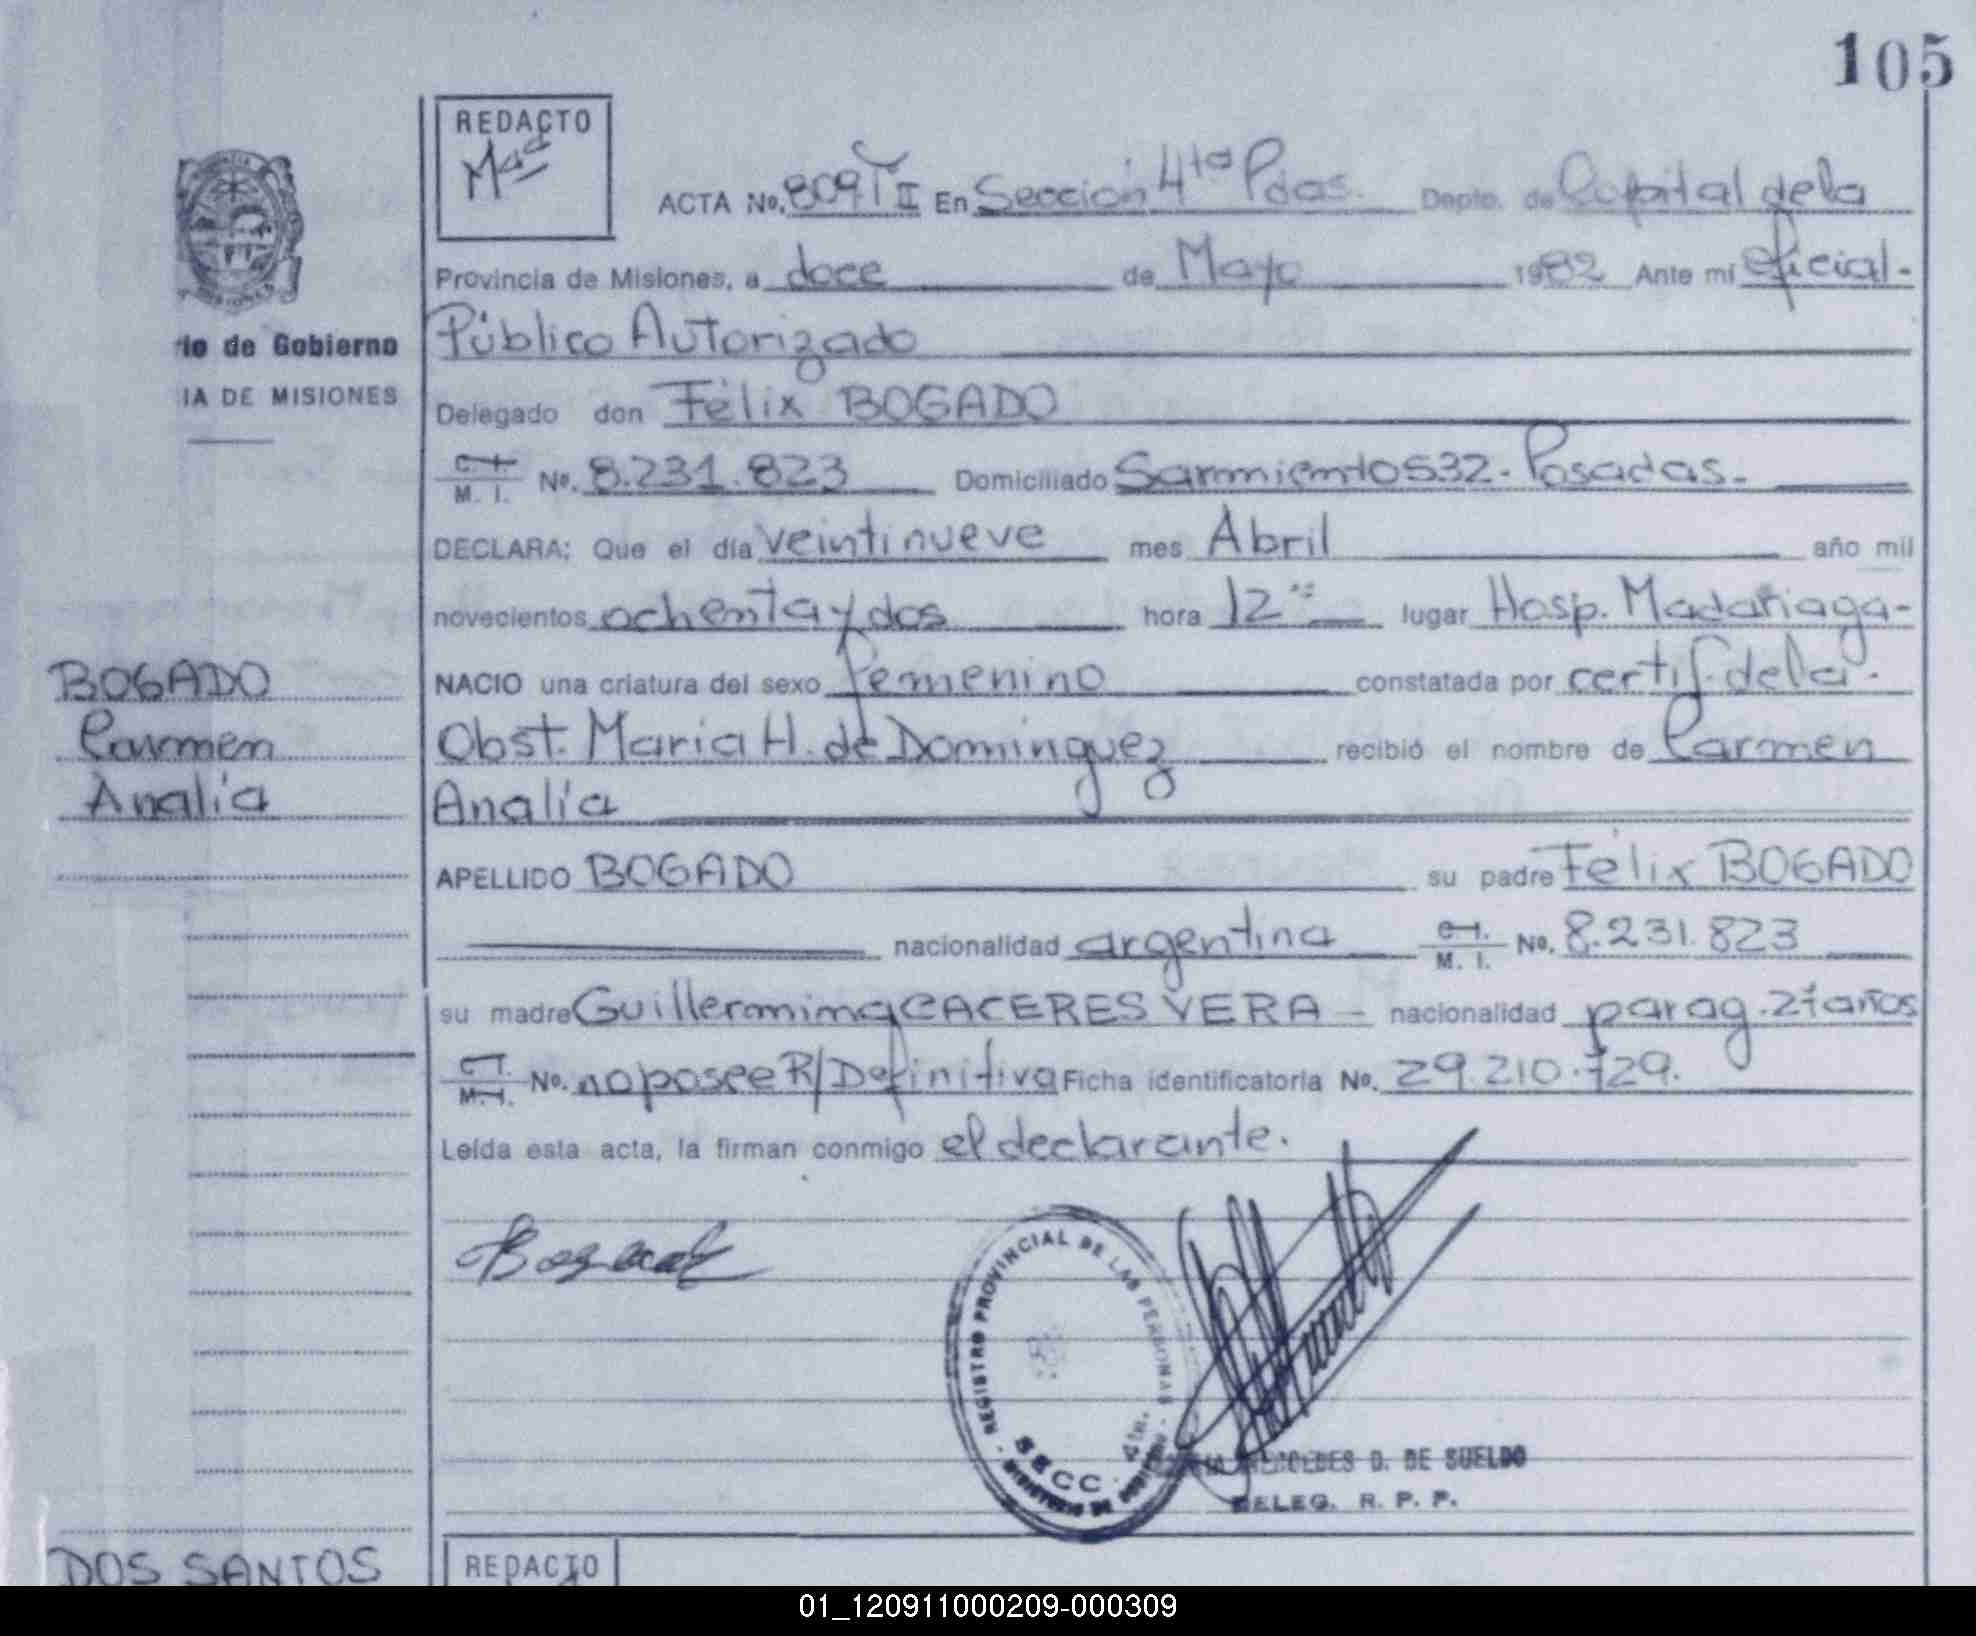 105
REDACTO
ACTA No. 809 T II En Sección 4ta Pdas. Depto. de Capital de la
Provincia de Misiones, a doce de Mayo 1982 Ante mí oficial.
io de Gobierno
Público Autorizado
IA DE MISIONES
Delegado don Félix BOGADO
M. I. No. 8.231.823 Domiciliado Sarmiento 532 - Posadas.
DECLARA: Que el día veintinueve mes Abril año mil
novecientos ochenta y dos hora 12 lugar Hosp. Madariaga-
BOGADO
NACIO una criatura del sexo femenino constatada por certif. de la.
Carmen
Obst. Maria H. de Dominguez recibió el nombre de Carmen
Analía
Analía
APELLIDO BOGADO su padre Félix BOGADO
nacionalidad argentina M. I. No. 8.231.823
su madre Guillermina CACERES VERA - nacionalidad parag. 21 años
No. no posee R/Definitiva Ficha identificatoria No. 29.210.729.
Leída esta acta, la firman conmigo el declarante.
Bogado
REGISTRO PROVINCIAL DE LAS PERSONAS
SECC. 4ta.
D. DE SUELDO
DELEG. R. P. P.
DOS SANTOS
REDACTO
01_120911000209-000309